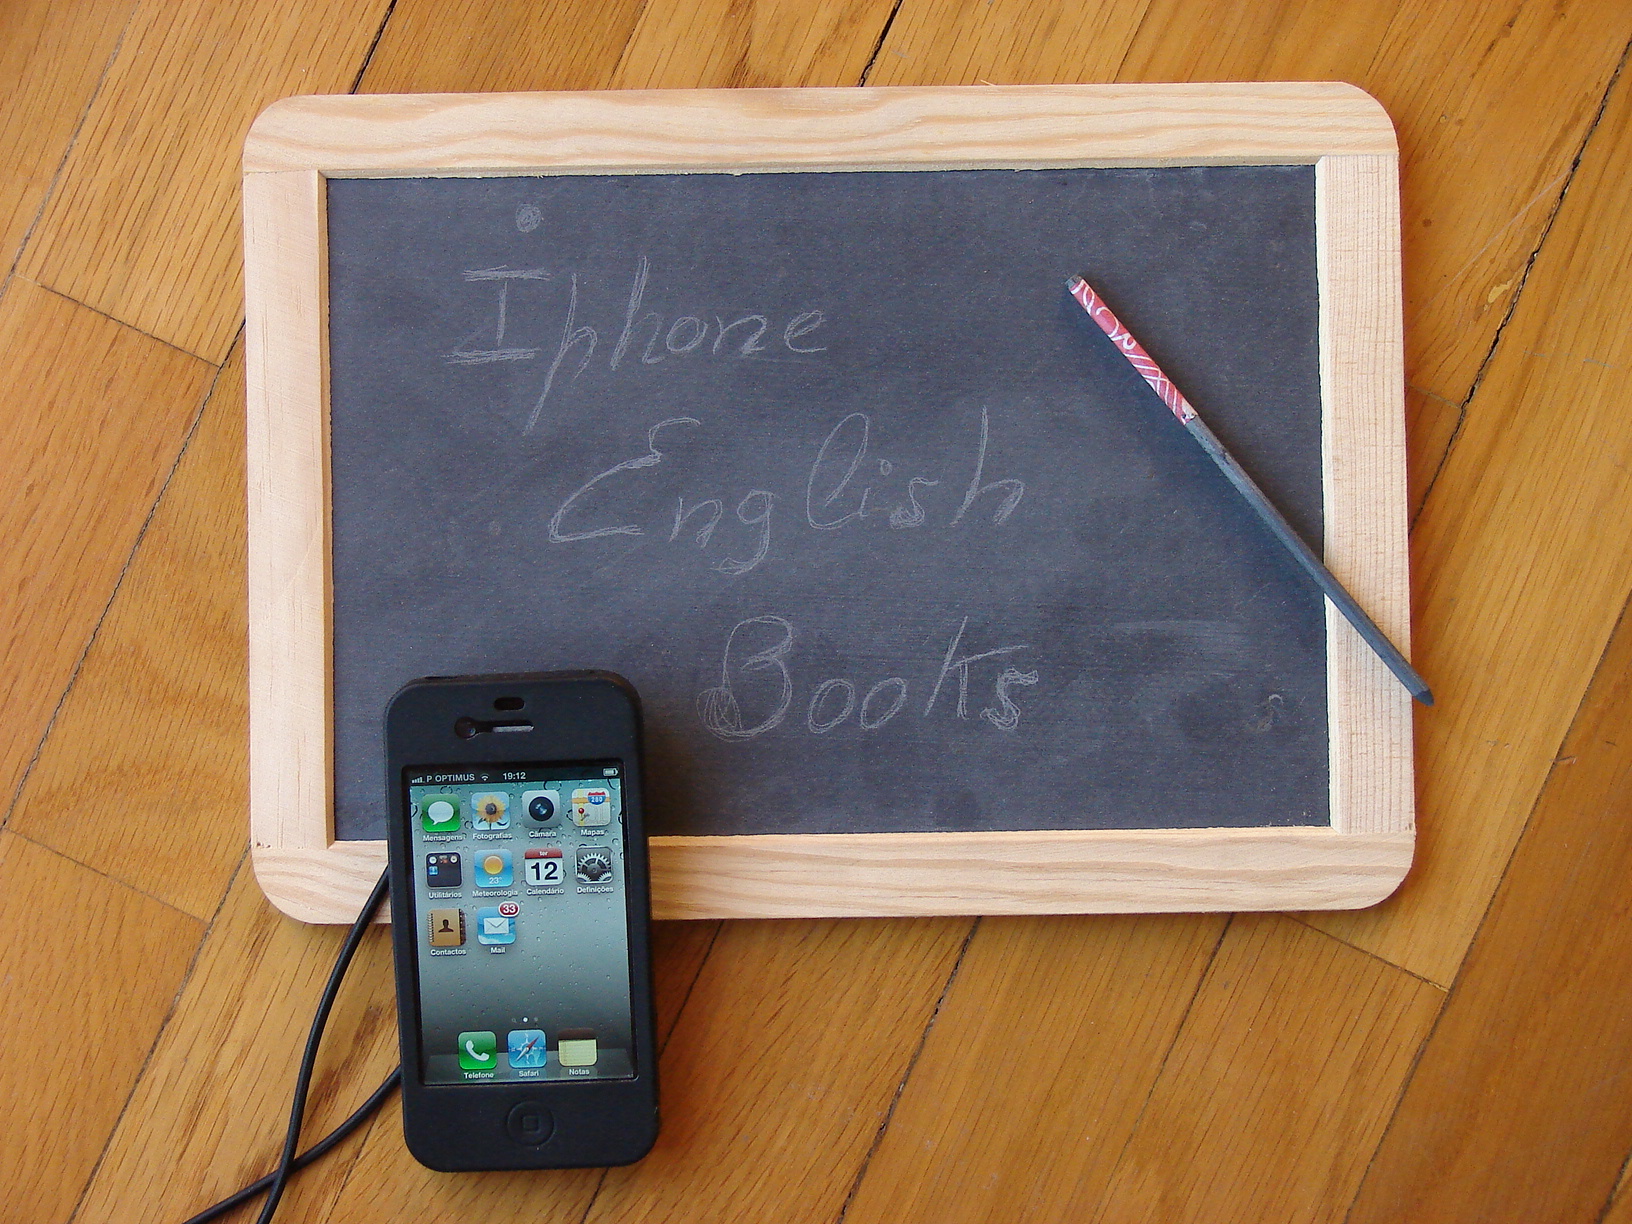 Iphone
English
Books
P OPTIMUS 19:12
Mensagens Fotografias Câmara Mapas
280
Utilitários Meteorologia Calendário Definições
23°
ter
12
Contactos Mail
33
Telefone Safari Notas